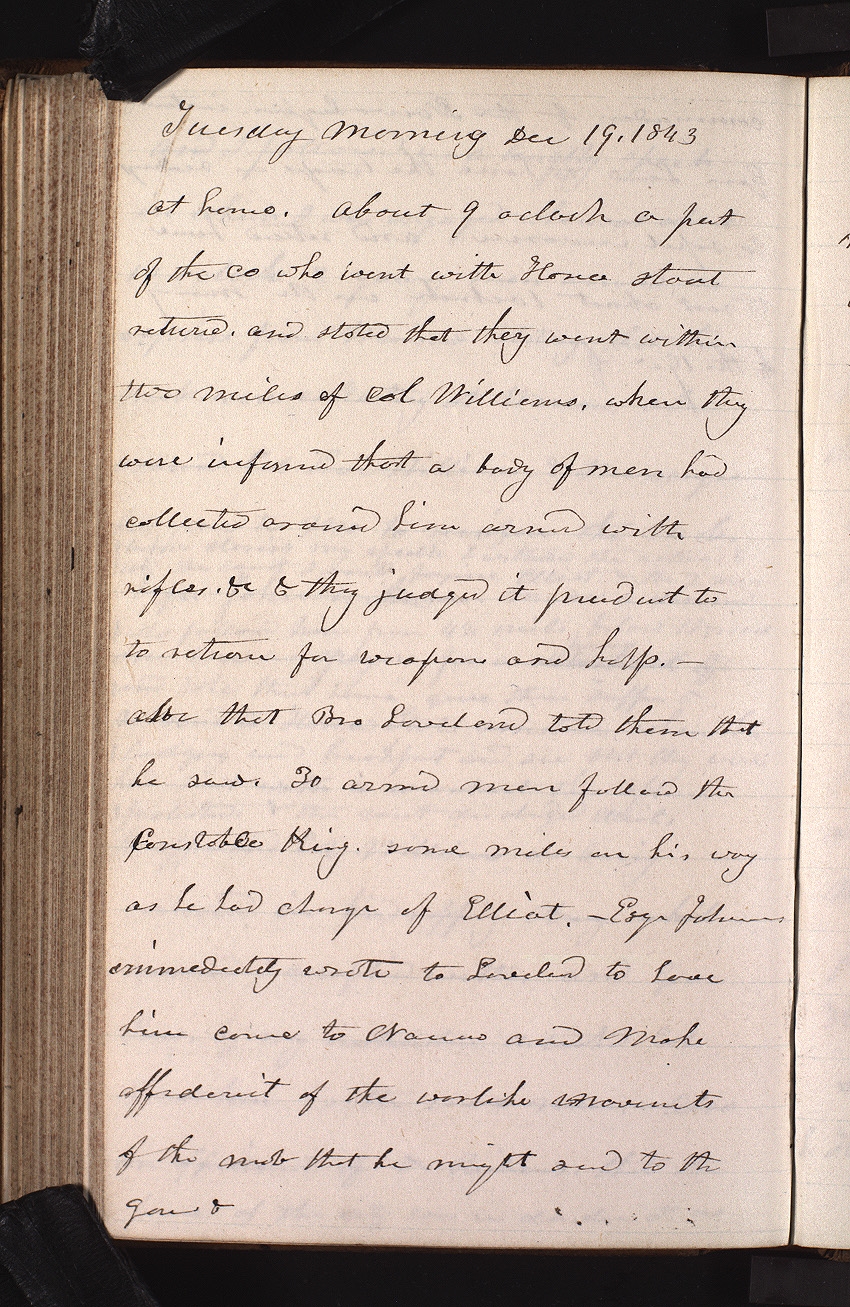 Tuesday Morning Dec 19. 1843
at home. about 9 oclock a part
of the co who went with Hosea Stout
returned. and stated that they went within
two miles of Col Williams, when they
were informed that a body of men had
collected around him armed with
rifles. &c & they judged it prudent to
to return for weapons and help. —
also that Bro Loveland told them that
he saw. 30 armed men follow the
Constable King. some miles on his way
as he had charge of Elliot. — Esqr Johnson
immediately wrote to Loveland to have
him come to Nauvoo and Make
affidavit of the warlike movements
of the mob that he might send to the
Gov &